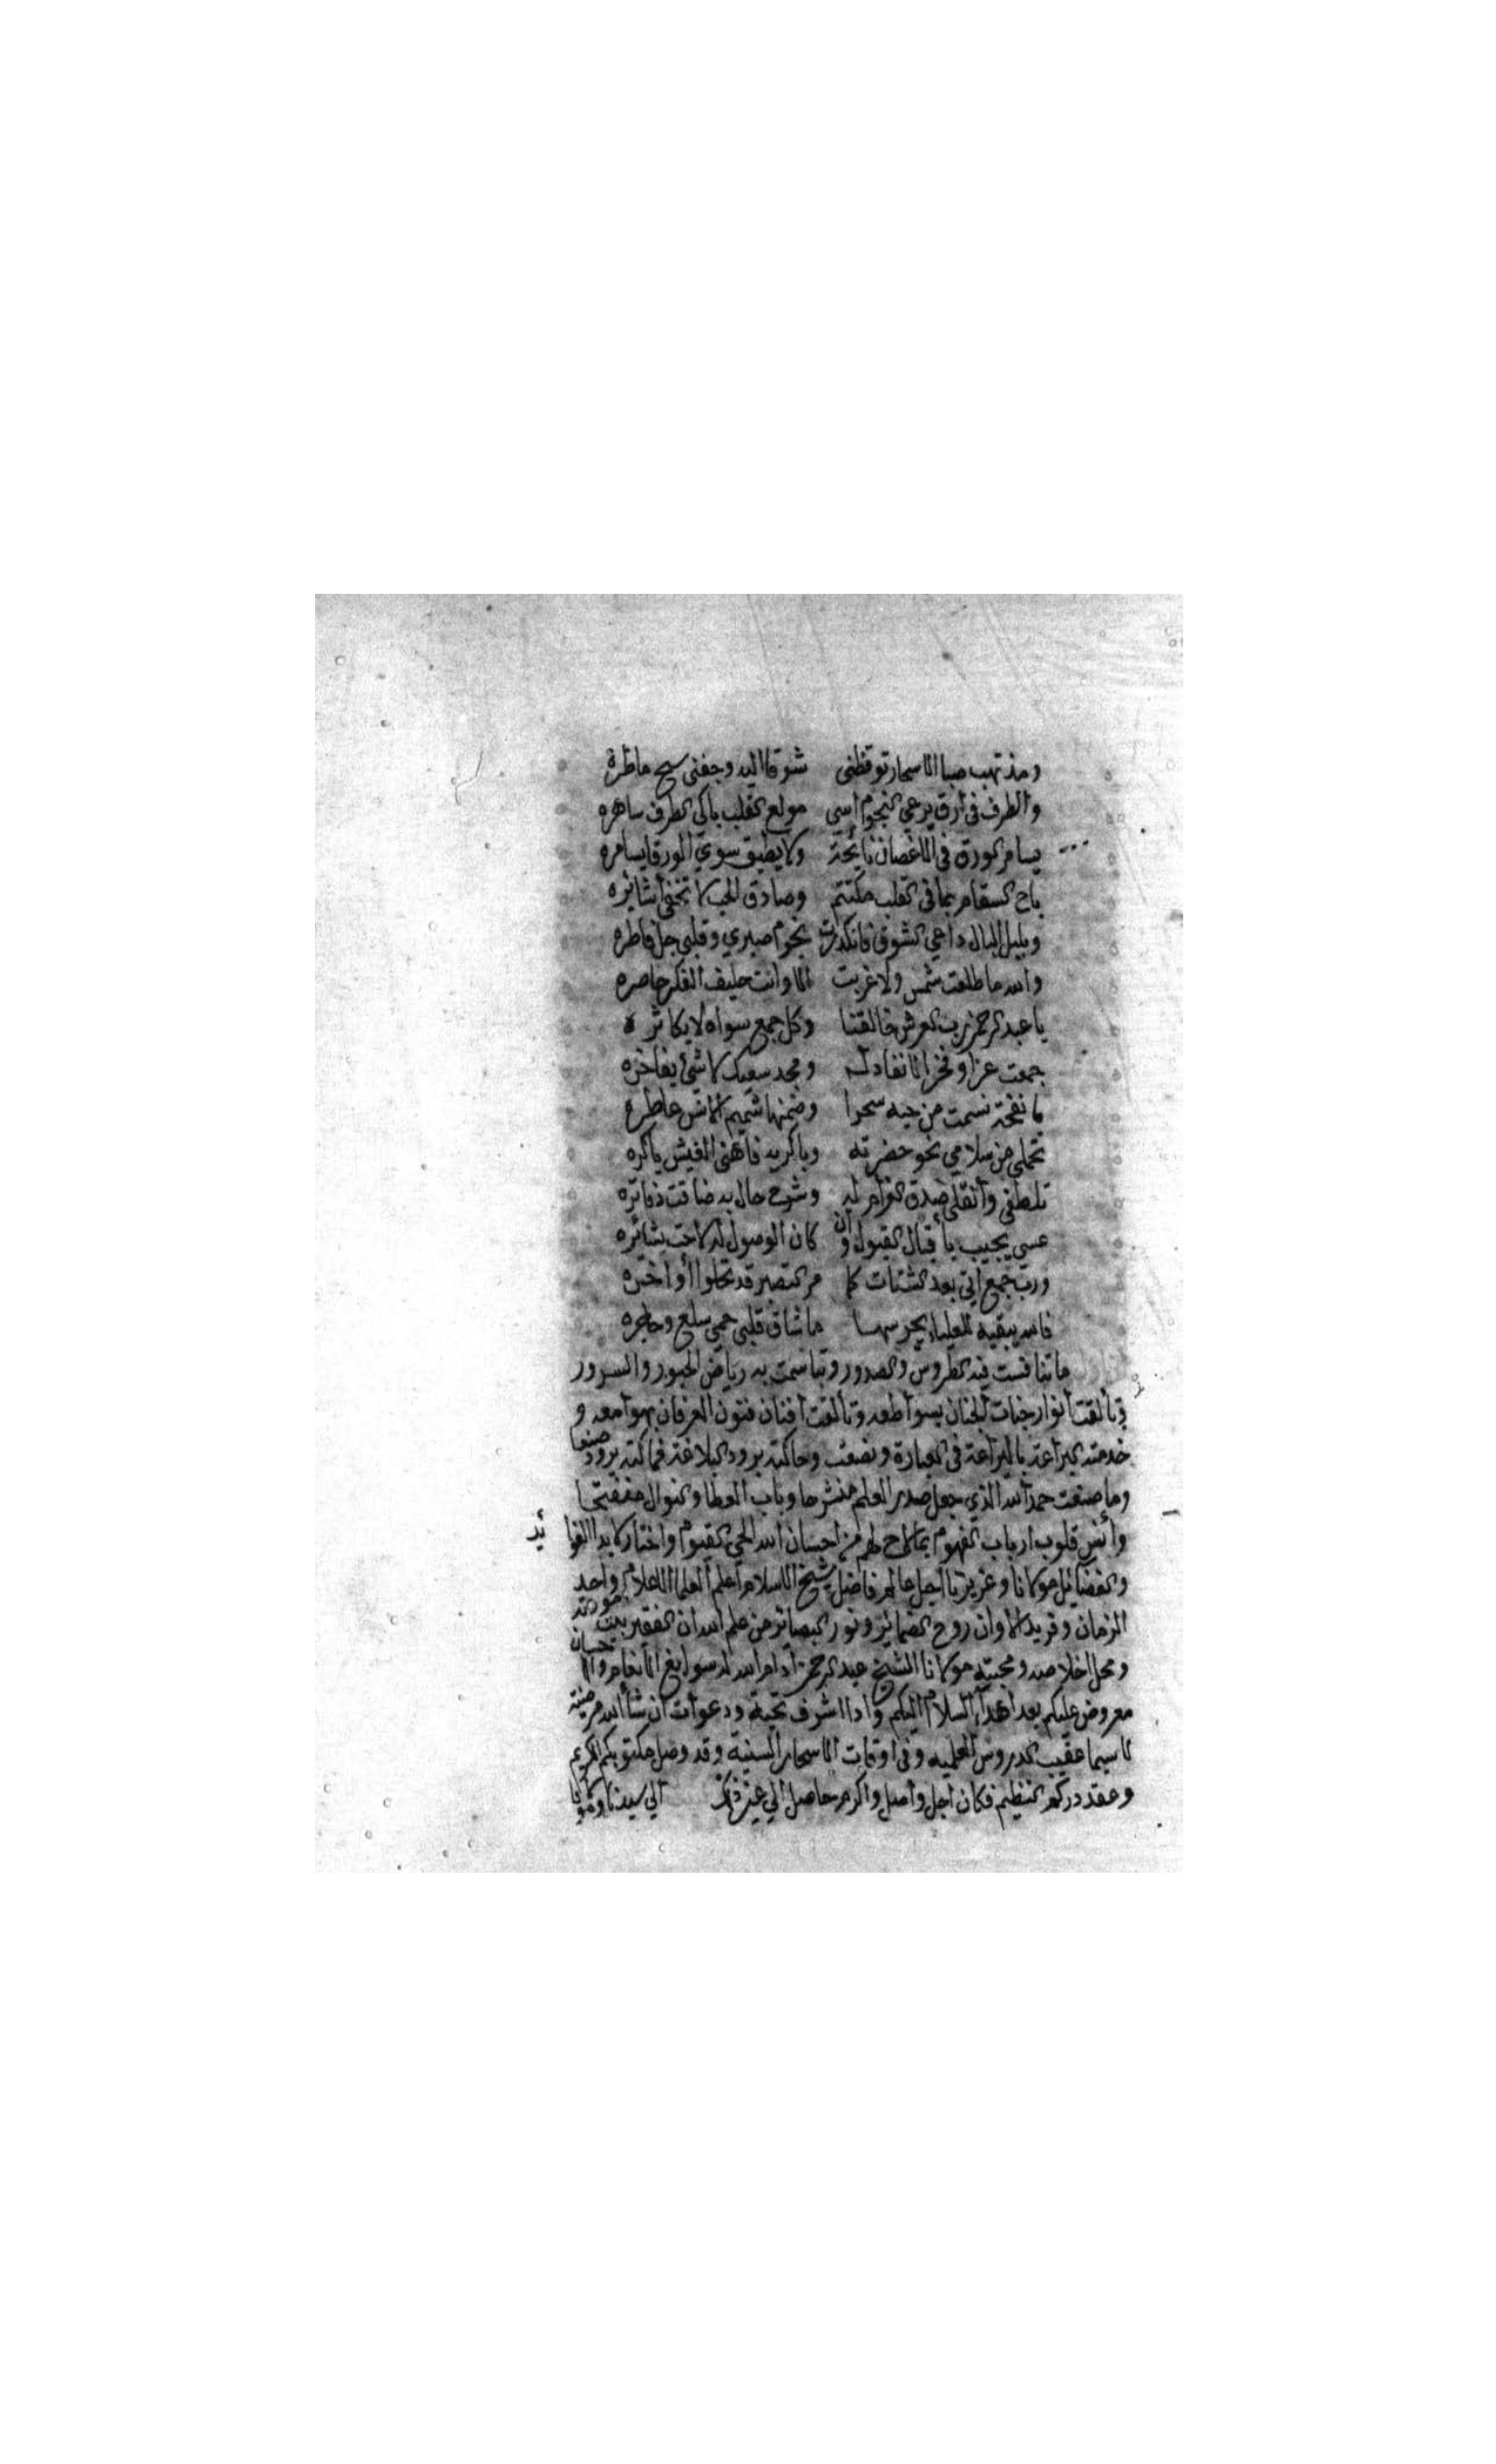 ومذ تهب صبا الاسحار توقظنى شوقا اليه وجفنى سح ماطرة
والطرف فى ارق يرعى النجوم اسى مولع القلب باكى الطرف ساهره
يسامر الورق فى الاغصان نايحة ولا يطيق سوي الورقا يسامره
باح السقام بما فى القلب مكتتم وصادق الحب لا تخفى أشائره
وبلبل البال داعي الشوق فانكدرت نجوم صبري وقلبى جل فاطره
والله ما طلعت شمس ولا غربت الا وانت حليف الفكر حاصره
يا عبد الرحمن رب العرش خالقنا وكل جمع سواه لا يكاثره
جمعت عزا وفخرا لا نفاد له ومجد سعيك لا شئ يفاخره
يا نفحة نسمت من حبه سحرا وضمنها شميم الانس عاطره
تحملى من سلامي نحو حضرته وباكريه فاهنى العيش باكره
تلطفى وأنقلى صدق الغرام له وشرح حال به ضاقت دفاتره
عسى يجيب بأقبال القبول وأن كان الوصول له لاحت بشائره
ورب جمع اتى بعد الشتات كما مر التصبر قد تحلوا أواخره
فالله يبقيه للعلياء يحرسها ما شاق قلبى حمى سلع وحاجره
ما تنافست فيه الطروس والصدور وتباسمت به رياض الحبور والسرور
وتألقت أنوار جنات الجنان بسواطعه وتألفت أفنان فنون العرفان بهوامعه و
خدمته البراعة باليراعة فى العبارة وحاكته برود البلاغة فحاكته برود صنعا
وما صنعت حمد الله الذي جعل صدر العلم منشرحا وباب العطا والنوال مفتتحا
وأنس قلوب ارباب الفهوم بما لاح لهم من احسان الله الحى القيوم واختار لابدا الفوا يد
والفضائل مولانا وعزيزنا اجل عالم فاضل شيخ الاسلام أعلم العلما الاعلام واحد
الزمان وفريد الاوان روح الضمائر ونور البصائر من علم الله ان الفقير بيت مودته
ومحل اخلاصه ومحبته مولانا الشيخ عبد الرحمن أدام الله له سوابغ الانعام والاحسان
معروض عليكم بعد اهدآء السلام اليكم وادا اشرف تحية ودعوات ان شاالله مرضية
لا سيما عقيب الدروس العلميه وفى اوقات الاسحار السنية وقد وصل مكتوبكم الكريم
وعقد دركم النظيم فكان أجل وأصل واكرم حاصل الي غير ذلك الي سيدنا ومولانا